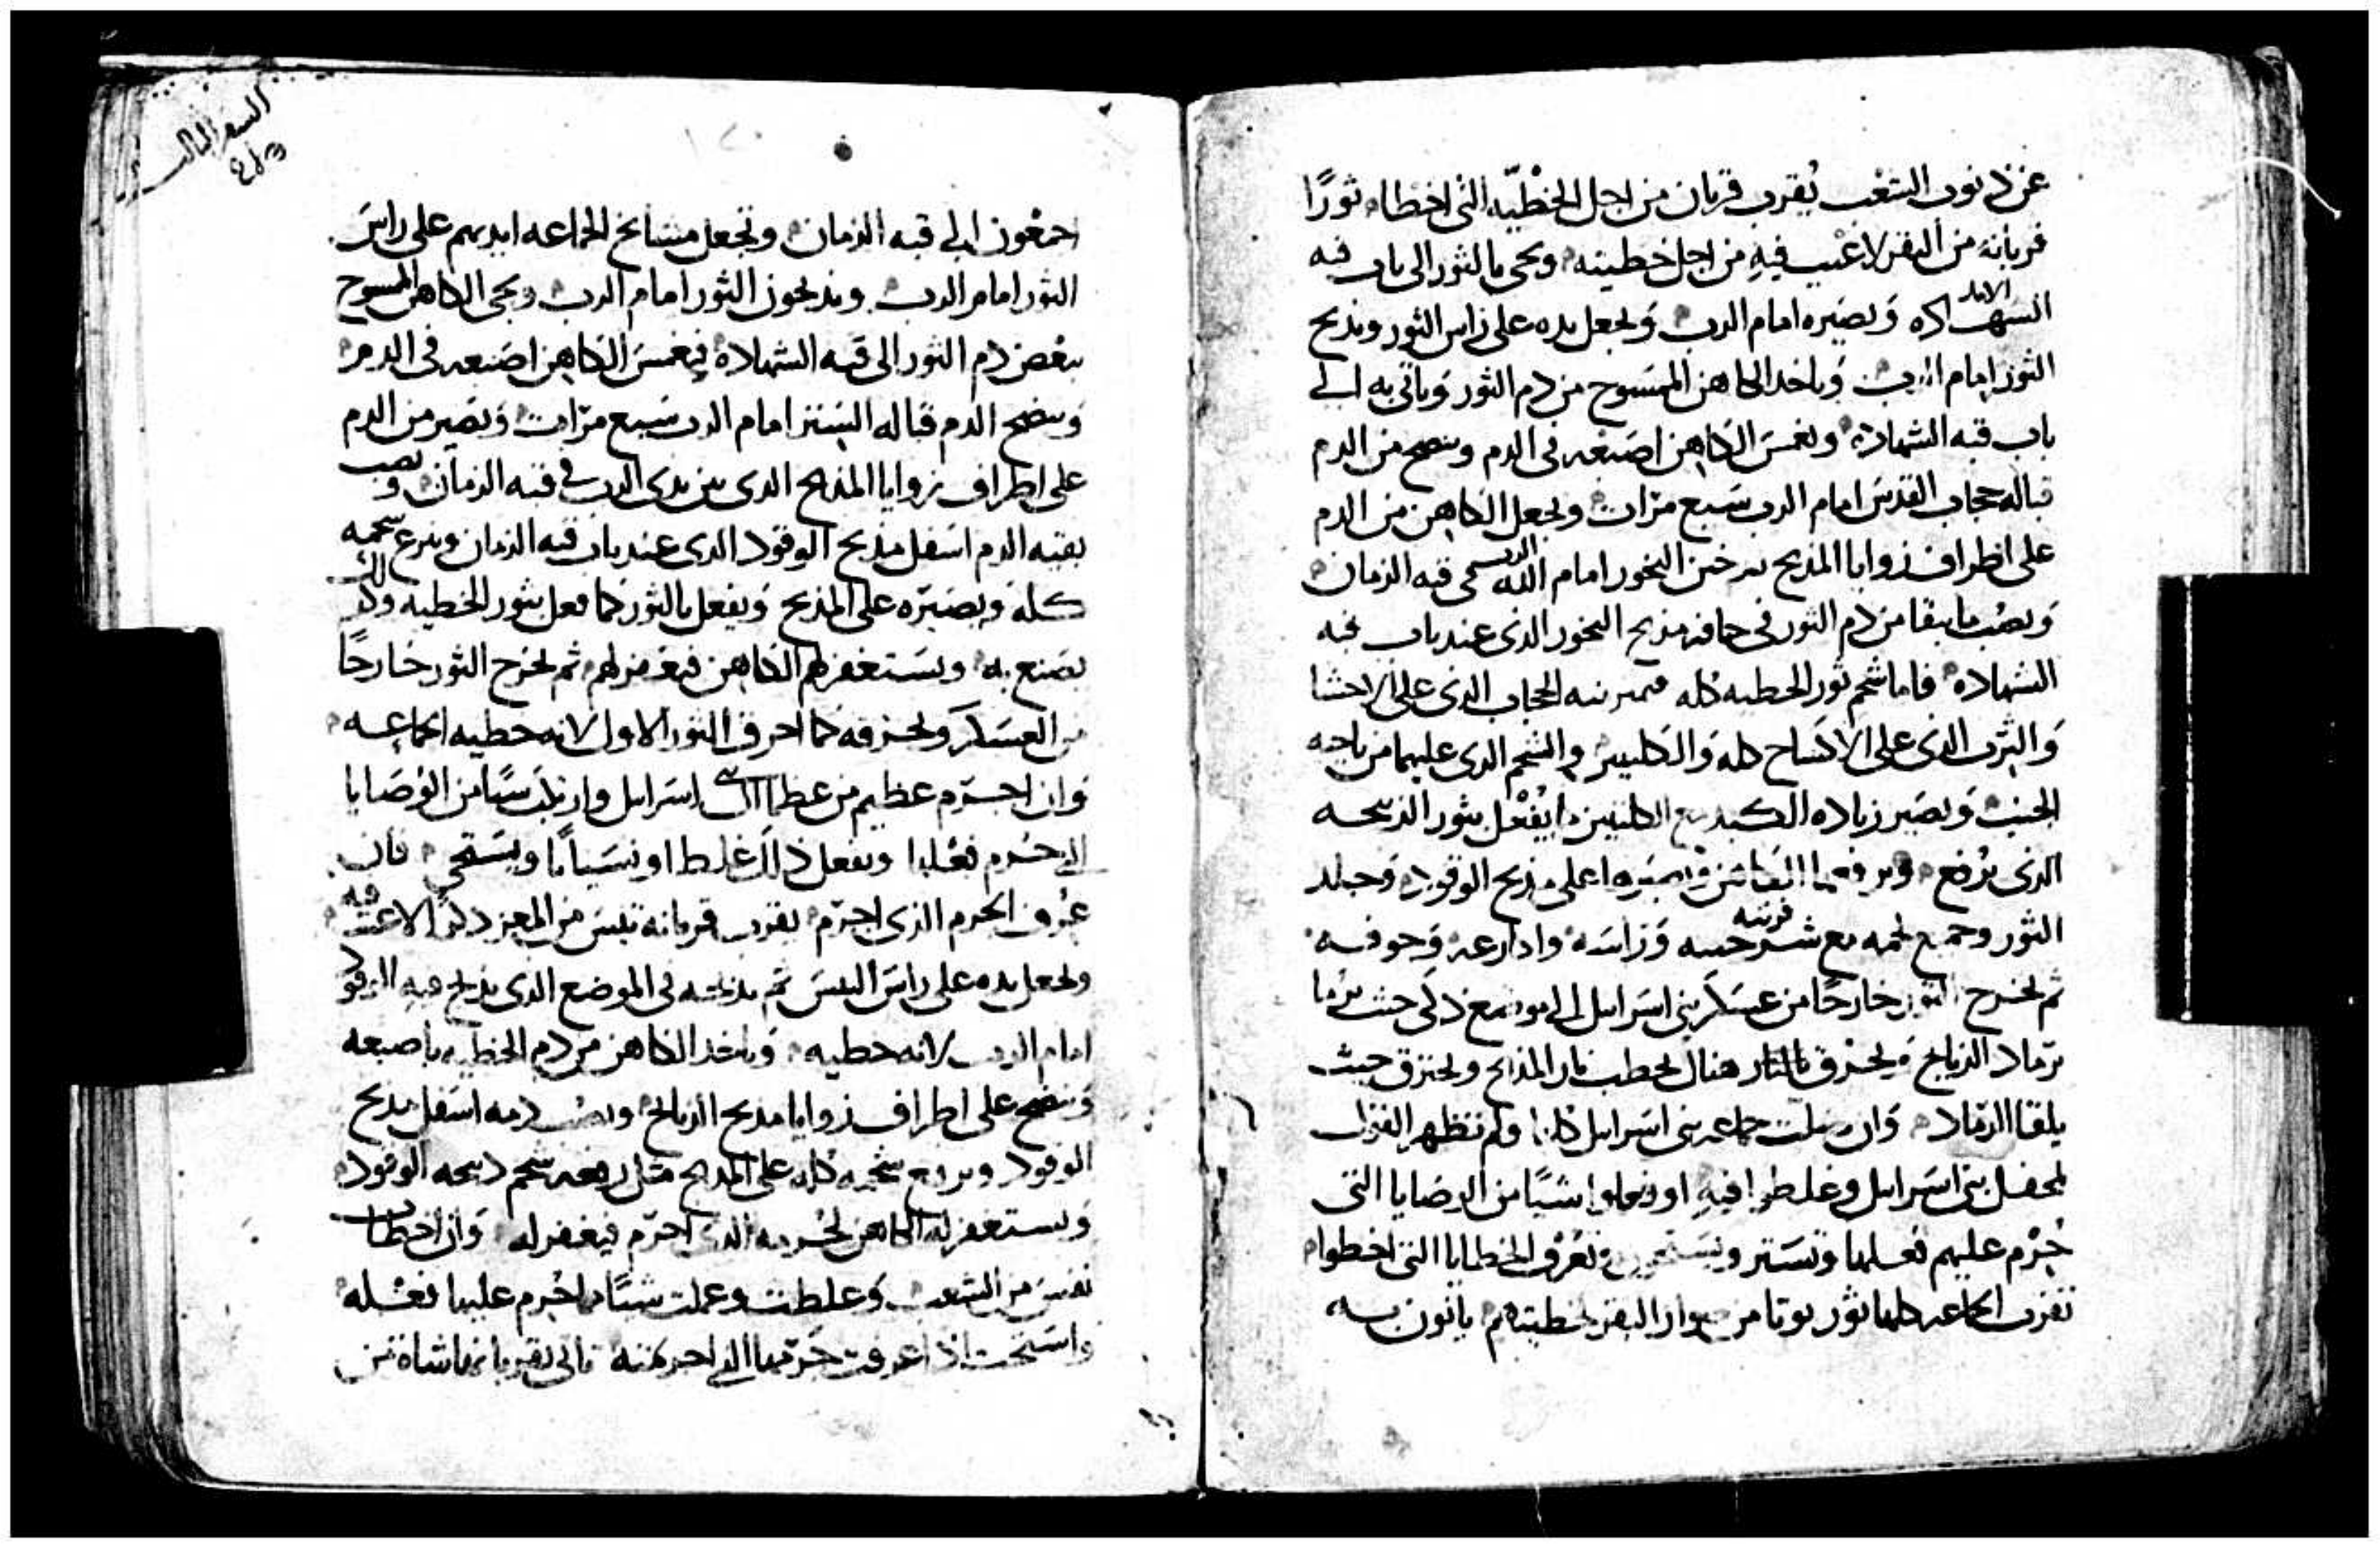 عن ذنوب الشعب يُقرب قربان من اجل الخطيّه التى اخطاه ثورًا
قربانه من البقر لا عيب فيهِ من اجل خطيته ويجى بالثور الى باب قبه
الشهاده الابد ويصيره امام الرب ويجعل يده على راس الثور ويذبح
الثور امام الرب وياخد الكاهن الممسوح من دم الثور وياتى به الى
باب قبه الشهاده ويغمس الكاهن اصبعه فى الدم وينضح من الدم
قباله حجاب القدس امام الرب سبع مرّات ويجعل الكاهن من الدم
على اطراف زوايا المذبح بدخن البخور امام الله الدى فى قبه الزمان
ويصُب ما يبقا من دم الثور فى حافه مذبح البخور الذى عند باب قبه
الشهاده فاما شحم ثور الخطيه كله فيميز منه الحجاب الدى على الاحشا
والثرب الدى على الاكساح كله والكليتين والشحم الدى عليهما من ناحيه
الجنب ويصير زياده الكبد مع الكليتين ما يُفعل بثور الذبيحه
الذى يُرفع ويرفعها الكاهن ويصيرها على مذبح الوقود وجلد
الثور وجميع لحمه مع وراسه واكارعه وجوفه
ثم يخرج الثور خارجًا من عسكر بنى اسرايل الى موضع ذكى حيث يُرما
برماد الذبايح ويحرق بالنار هناك بحطب نار المذبح ويحترق حيث
يلقا الرماد وان جماعه بنى اسرايل كلها ولم تظهر القول
لمحفل بنى اسرايل وغلطوا فيهِ او فعلوا شيًا من الوصايا التى
حُرّم عليهم فعلها وتستر وتُعرف الخطايا التى اخطوا
تقرب الجماعه كلها ثور يوتا من البقر لخطيتهم ياتون به
السفر الثالث
اجمعون الى قبه الزمان وتجعل مشايخ الجماعه ايديهم على راس
الثور امام الرب ويذبحون الثور امام الرب ويجى الكاهن الممسوح
ببعض دم الثور الى قبه الشهاده فيغمس الكاهن اصبعه فى الدم
وينضح الدم قباله الستر امام الرب سبع مرّات ويصير من الدم
على اطراف زوايا المذبح الدى بين يدى الرب فى قبه الزمان ويصب
بقيه الدم اسفل مذبح الوقود الدى عند باب قبه الزمان وينزع شحمه
كله ويصيّره على المذبح ويفعل بالثور كما فعل بثور الخطيه وكذلك
يصنع به ويستغفر لهم الكاهن فيغفر لهم ثم يخرج الثور خارجًا
من العسكر ويحرقه كما احرق الثور الاول لانه خطيه الجماعه
وان اجترم عظيم من عظما اسرايل وارتكب شيًا من الوصايا
التى حُرم فعلها ويفعل ذلك غلطا او نسيانًا ويستحى فان
عُرف الجرم الذى اجترم يقرب قربانه تيس من المعز ذكرًا لا عيب فيه
ويجعل يده على راس التيس ثم يذبحه فى الموضع الدى يذبح فيه الوقود
امام الرب لانه خطيه وياخد الكاهن من دم الخطيه باصبعه
وينضح على اطراف زوايا مذبح الذبايح ويصُب دمه اسفل مذبح
الوقود ويرفع شحمه كله على المذبح مثل رفعه شحم ذبيحه الوقود
ويستغفر له الكاهن لجُرمه الدى اجترم فيغفر له وان اخطات
نفس من الشعب وغلطت وعملت شيًا مما حُرم عليها فعله
واستحت اذا عرفت جرمها تاتى بقربانها شاة من